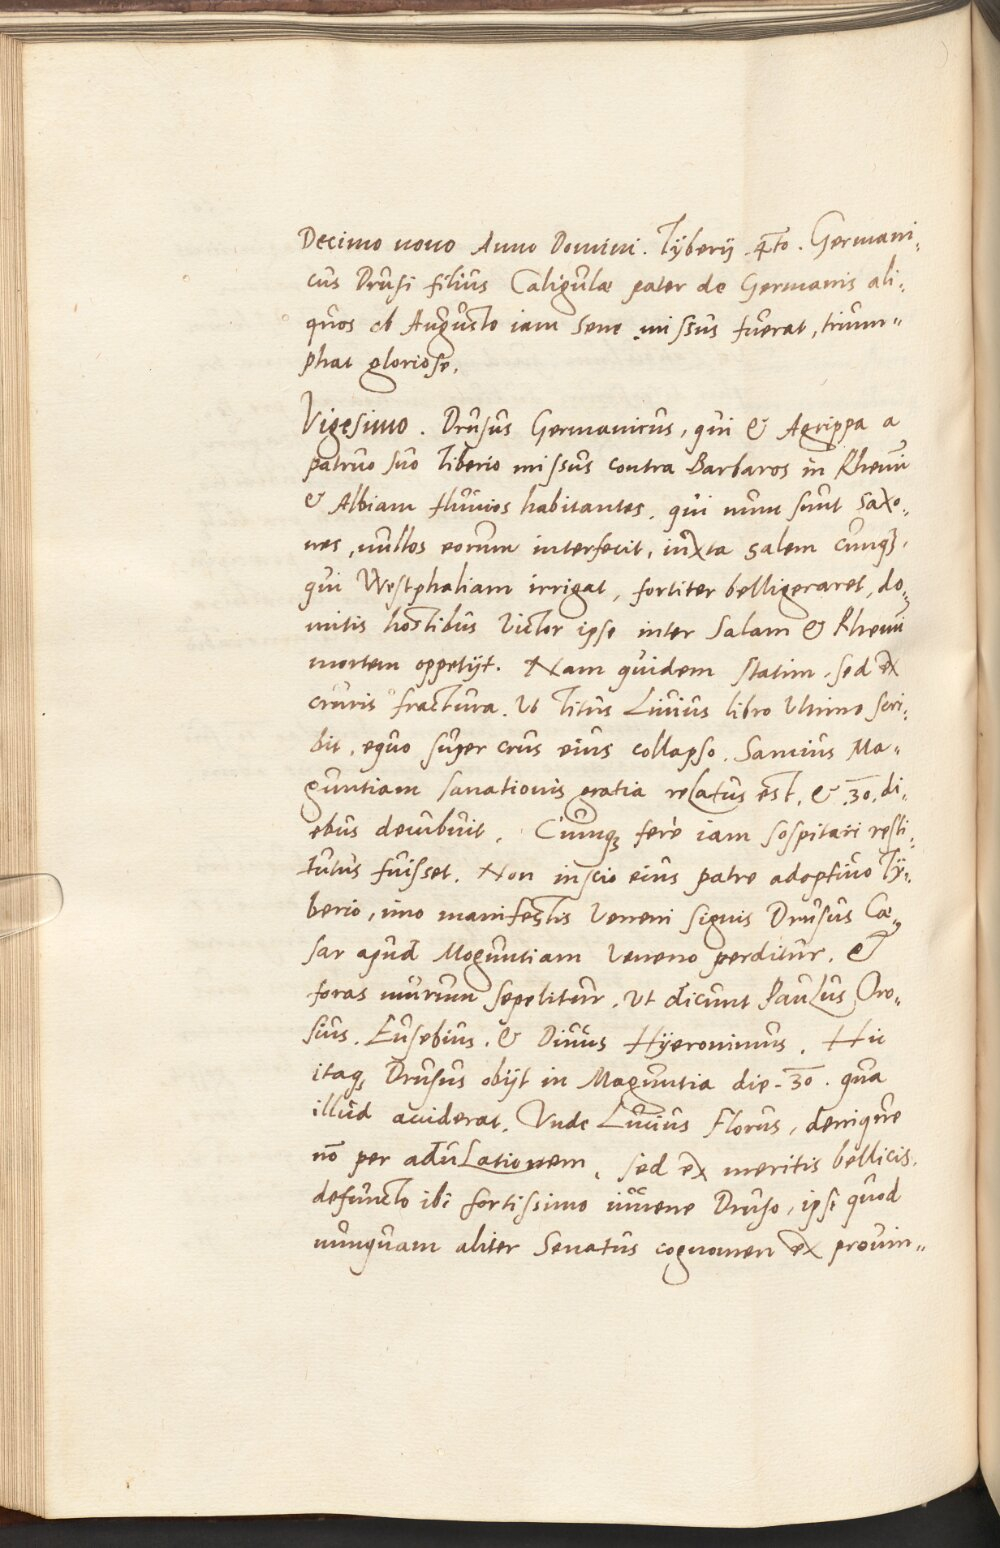 Decimo nono Anno Domini. Tÿberÿ 4to. Germani,
cus Drusi filius Caligulæ pater de Germanis ali,
quos ob Augusto iam sene missus fuerat, trium„
phat gloriose.
Vigesimo. Drusus Germanicus, qui & Agrippa a
patruo suo Tiberio missus contra Barbaros in Rhenū
& Albiam fluuios habitantes. qui nunc sunt Saxo,
nes, nullos eorum interfecit, iuxta Salem cumqȝ,
qui Westphaliam irrigat, fortiter belligeraret, do„
mitis hostibus Victor ipse inter Salam & Rhenū
mortem oppetÿt. Nam quidem statim, sed ex
cruris fractura. Ut Titus Liuius libro Ultimo scri,
bit, equo super crus eius collapso. Saucius Ma„
guntiam sanationis gratia relatus est, & .30. di,
ebus decubuit. Cumqȝ fere iam sospitati resti,
tutus fuisset. Non inscio eius patre adoptiuo Tÿ„
berio, imo manifestis Veneni signis Drusus Cæ„
sar apud Moguntiam Veneno perditur. &
foras murum sepelitur. Ut dicunt Paulus Oro„
sius. Eusebius. & Diuus Hÿeronimus. Hic
itaqȝ Drusus obÿt in Maguntia die .30. qua
illud acciderat. Unde Lucius Florus, denique
nō per adulationem, sed ex meritis bellicis,
defuncto ibi fortissimo iuuene Druso, ipse quod
nunquam aliter Senatus cognomen ex prouin„